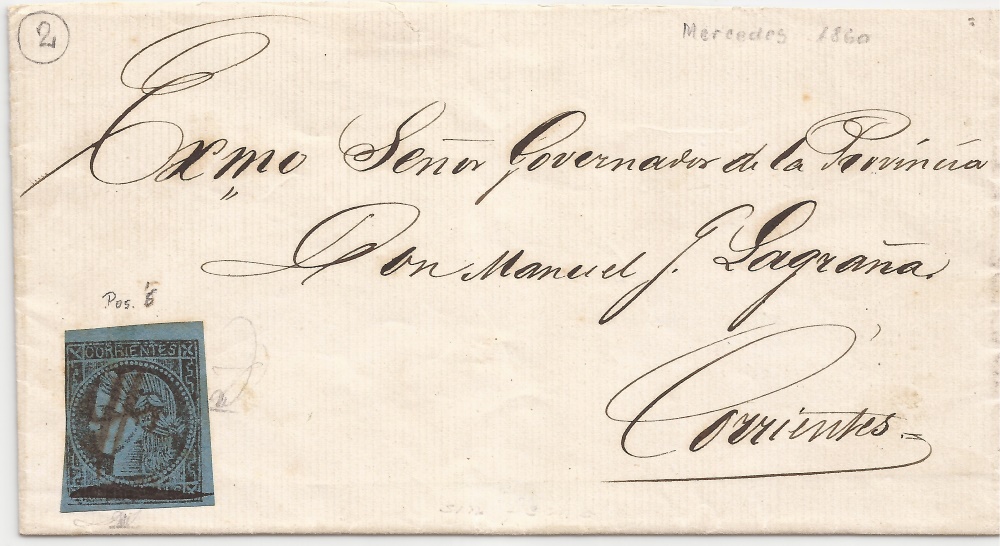 2
Mercedes 1860
Exmo Señor Governador de la Provincia
Don Manuel J. Lagraña
Pos. 5
CORRIENTES
Corrientes